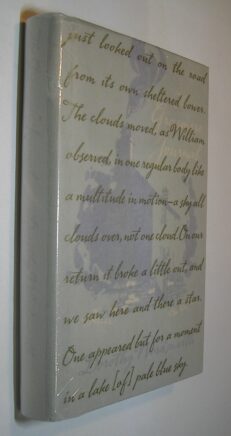 just looked out on the road
from its own sheltered bower.
The clouds moved, as William
observed, in one regular body like
a multitude in motion—a sky all
clouds over, not one cloud. On our
return it broke a little out, and
we saw here and there a star.
One appeared but for a moment
in a lake [of] pale blue sky.